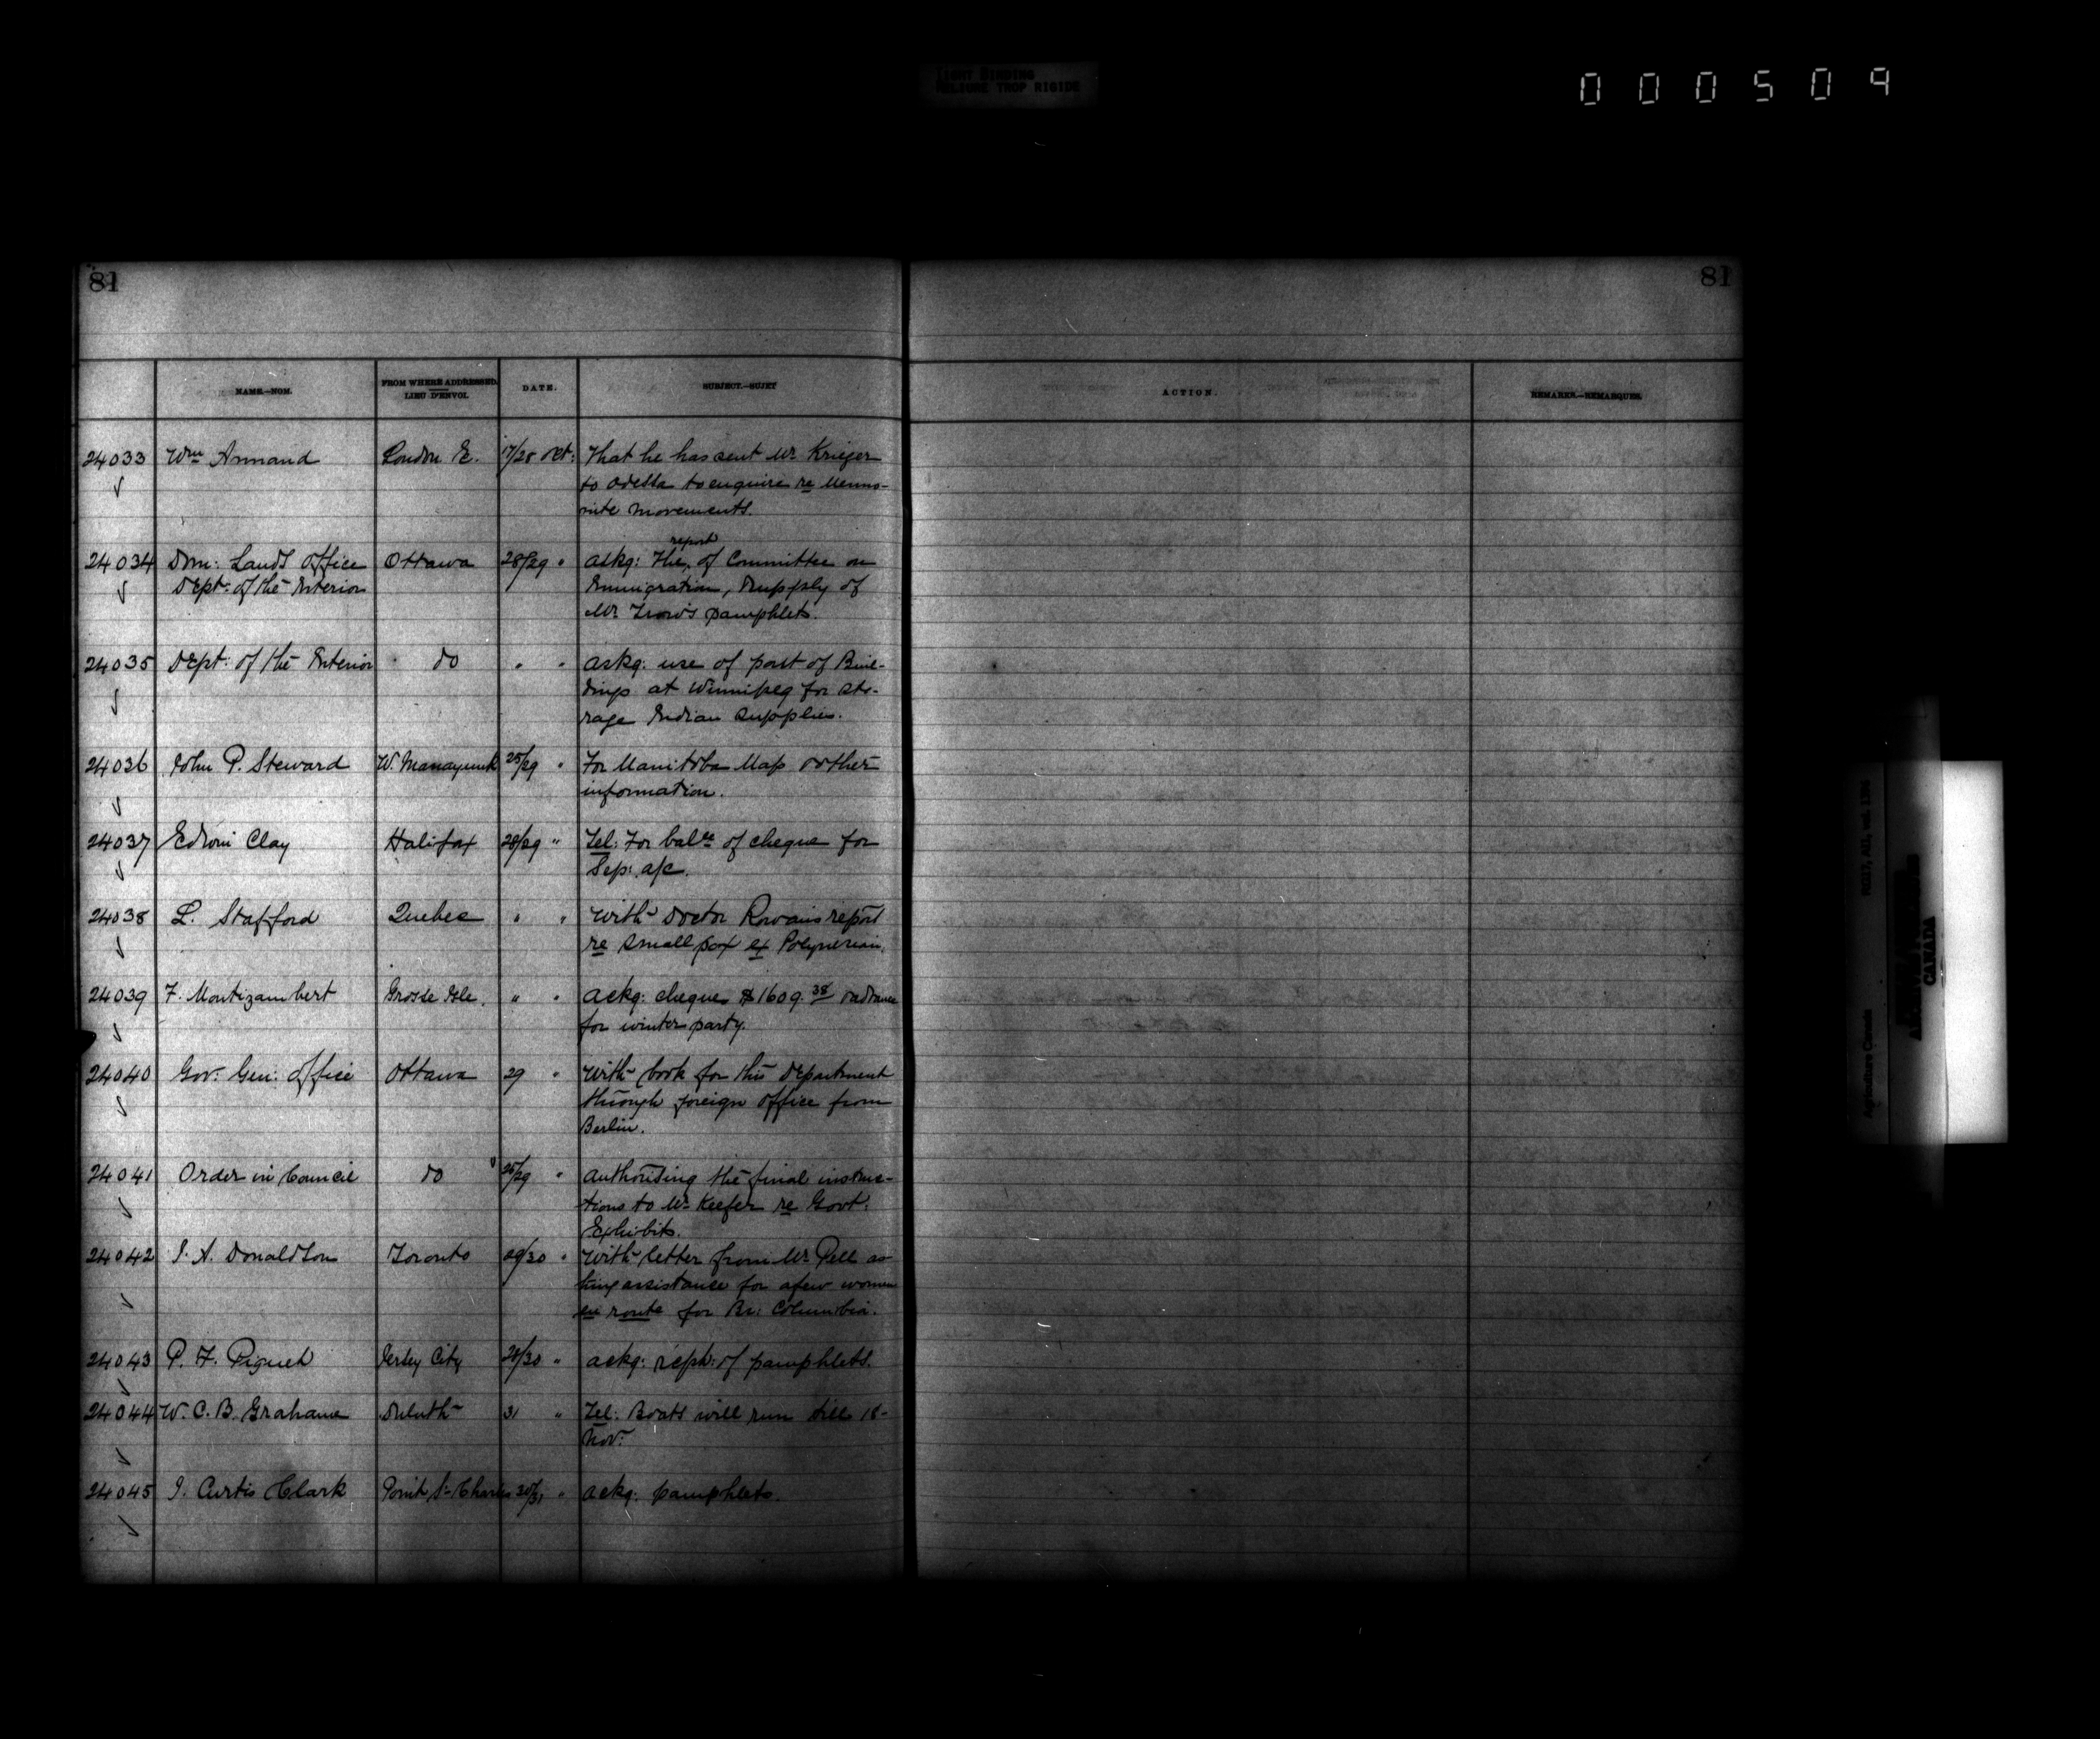 TIGHT BINDING
RELIURE TROP RIGIDE
000509
81
81
NAME.—NOM.
FROM WHERE ADDRESSED.
LIEU D'ENVOI.
DATE.
SUBJECT.—SUJET
ACTION.
REMARKS.—REMARQUES.
24033 Wm Annand London E. 17/28 Oct: That he has sent Mr. Krieger
to Odessa to enquire re Menno-
nite movements.
24034 Dom: Lands Office Ottawa 28/29 " askg: the report of Committee on
Dept: of the Interior Immigration, & supply of
Mr. Trow's pamphlets.
24035 Dept: of the Interior do " " askg: use of part of Buil-
dings at Winnipeg for sto-
rage Indian supplies.
24036 John P. Steward W. Manayunk 25/29 " For Manitoba Map & other
information.
24037 Edwin Clay Halifax 28/29 " Tel: For balce of cheque for
Sep: a/c.
24038 L. Stafford Quebec " " With Doctor Rowan's report
re small pox ex Polynesian.
24039 F. Montizambert Grosse Isle. " " ackg: cheque $1609.38 & advance
for winter party.
24040 Gov: Gen: Office Ottawa 29 " With book for this Department
through foreign office from
Berlin.
24041 Order in Council do 25/29 " authorising the final instruc-
tions to Mr. Keefer re Govt:
Exhibits.
24042 J. A. Donaldson Toronto 29/30 " With letter from Mr. Pell as-
king assistance for a few women
en route for Br: Columbia.
24043 P. F. Piguet Jersey City 28/30 " ackg: rcpt: of pamphlets.
24044 W. C. B. Grahame Duluth 31 " Tel: Boats will run till 18-
Nov:
24045 J. Curtis Clark Point St Charles 30/31 " ackg: pamphlets.
Agriculture Canada
RG17, AII, vol. 1396
CANADA